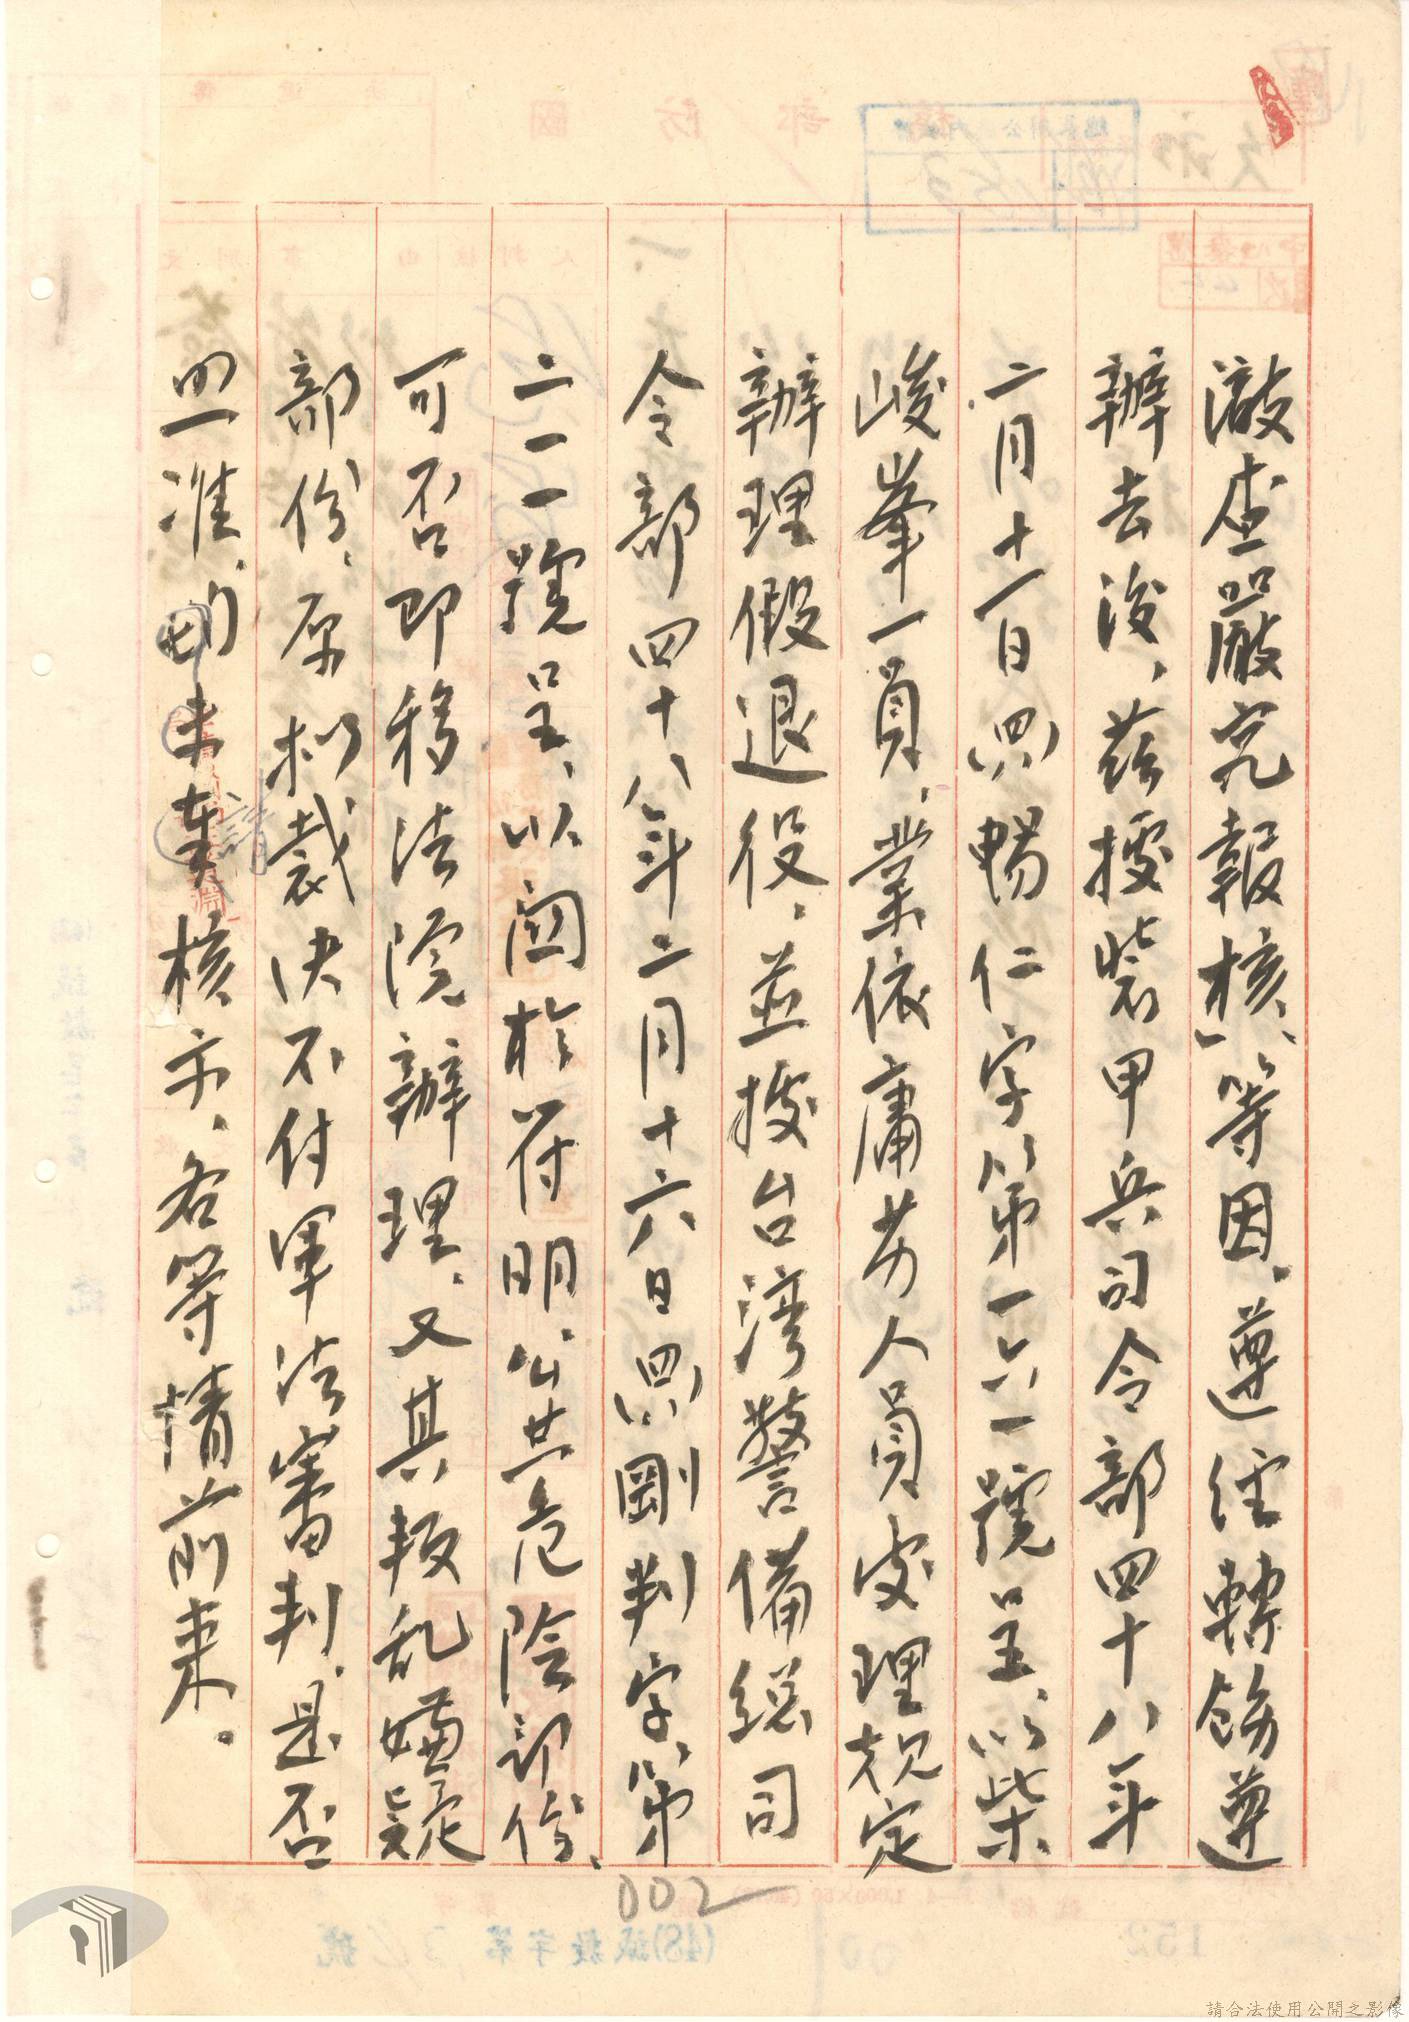 澈查嚴究報核」等因。遵經轉飭遵
辦去後，茲據裝甲兵司令部四十八年
二月十一日(四八)暢仁字第一六一號呈，以柴
峻峯一員，業依庸劣人員安理規定
辦理假退役，並據台灣警備總司
令部四十八年二月十六日(四八)剛判字第
二一一號呈，以関於符明，公共危險部份，
可否即移法院辦理，又其叛乱嫌疑
部份，原拟裁决不付軍法審判，是否
照准，請核示，各等情前來。
002
請合法使用公開之影像